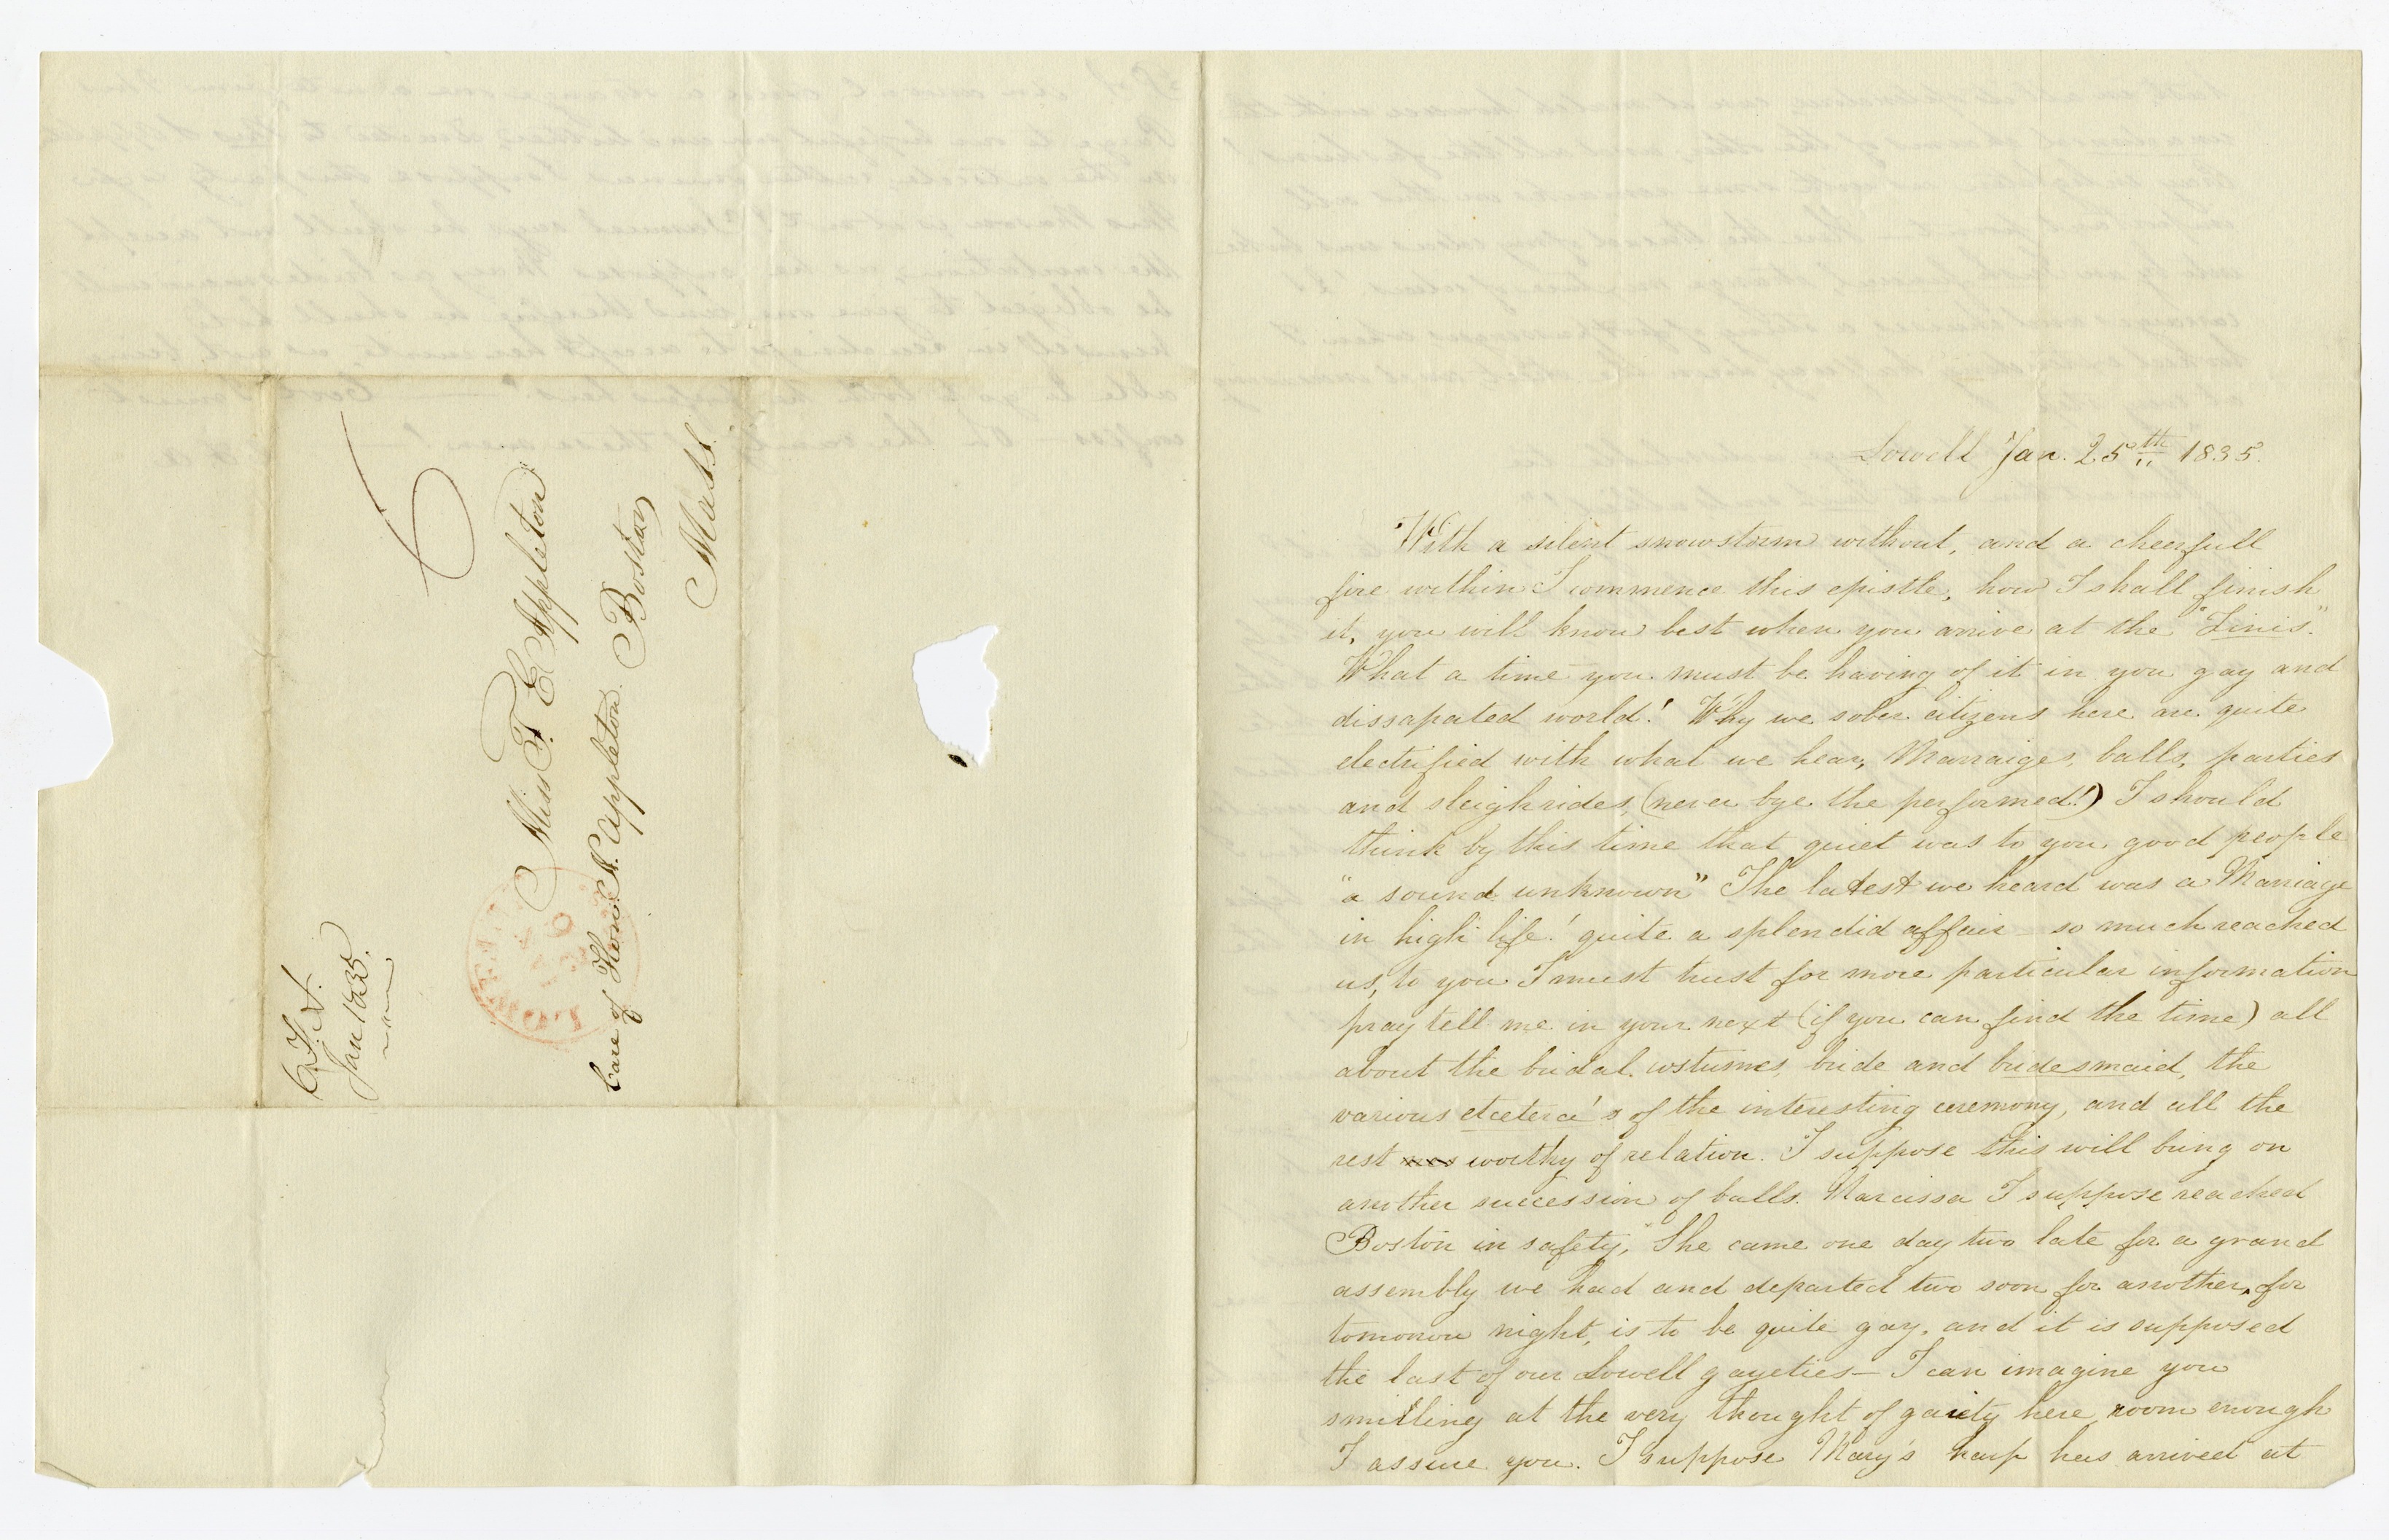 6
Miss F. E. Appleton
Care of Hon. N. Appleton. Boston
Mass.
Jan 1835.
LOWELL
Lowell Jan. 25th 1835.
With a silent snowstorm without, and a cheerfull
fire within I commence this epistle, how I shall finish
it, you will know best when you arrive at the "Finis".
What a time you must be having of it in you gay and
dissapated world! Why we sober citizens here are quite
electrified with what we hear, Marraiges, balls, parties
and sleighrides, (never bye the performed!) I should
think by this time that quiet was to you good people
"a sound unknown" The latest we heard was a Marriage
in high life! quite a splendid affair so much reached
us, to you I must trust for more particular information
pray tell me in your next (if you can find the time) all
about the bridal costumes, bride and bridesmaid, the
various etcetera's of the interesting ceremony, and all the
rest worthy of relation. I suppose this will bring on
another succession of balls. Narcissa I suppose reached
Boston in safety, She came one day two late for a grand
assembly we had and departed two soon for another, for
tomorrow night, is to be quite gay, and it is supposed
the last of our Lowell gayeties— I can imagine you
smilling at the very thought of gaiety here room enough
I assure you. I suppose Mary's harp has arrived at